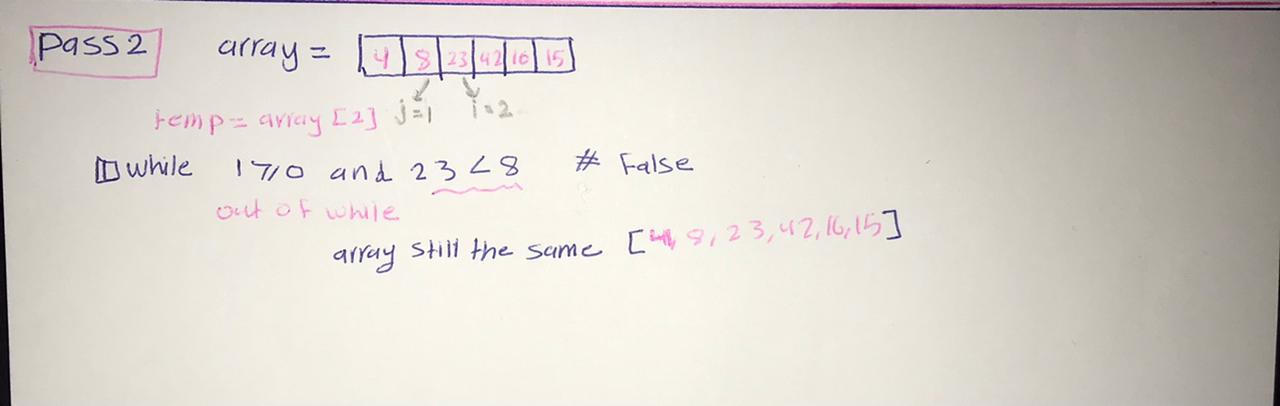 Pass 2 array = [4 8 23 42 16 15]
j=1 i=2
temp = array [2]
while 1 >= 0 and 23 < 8 # False
out of while
array still the same [4, 8, 23, 42, 16, 15]